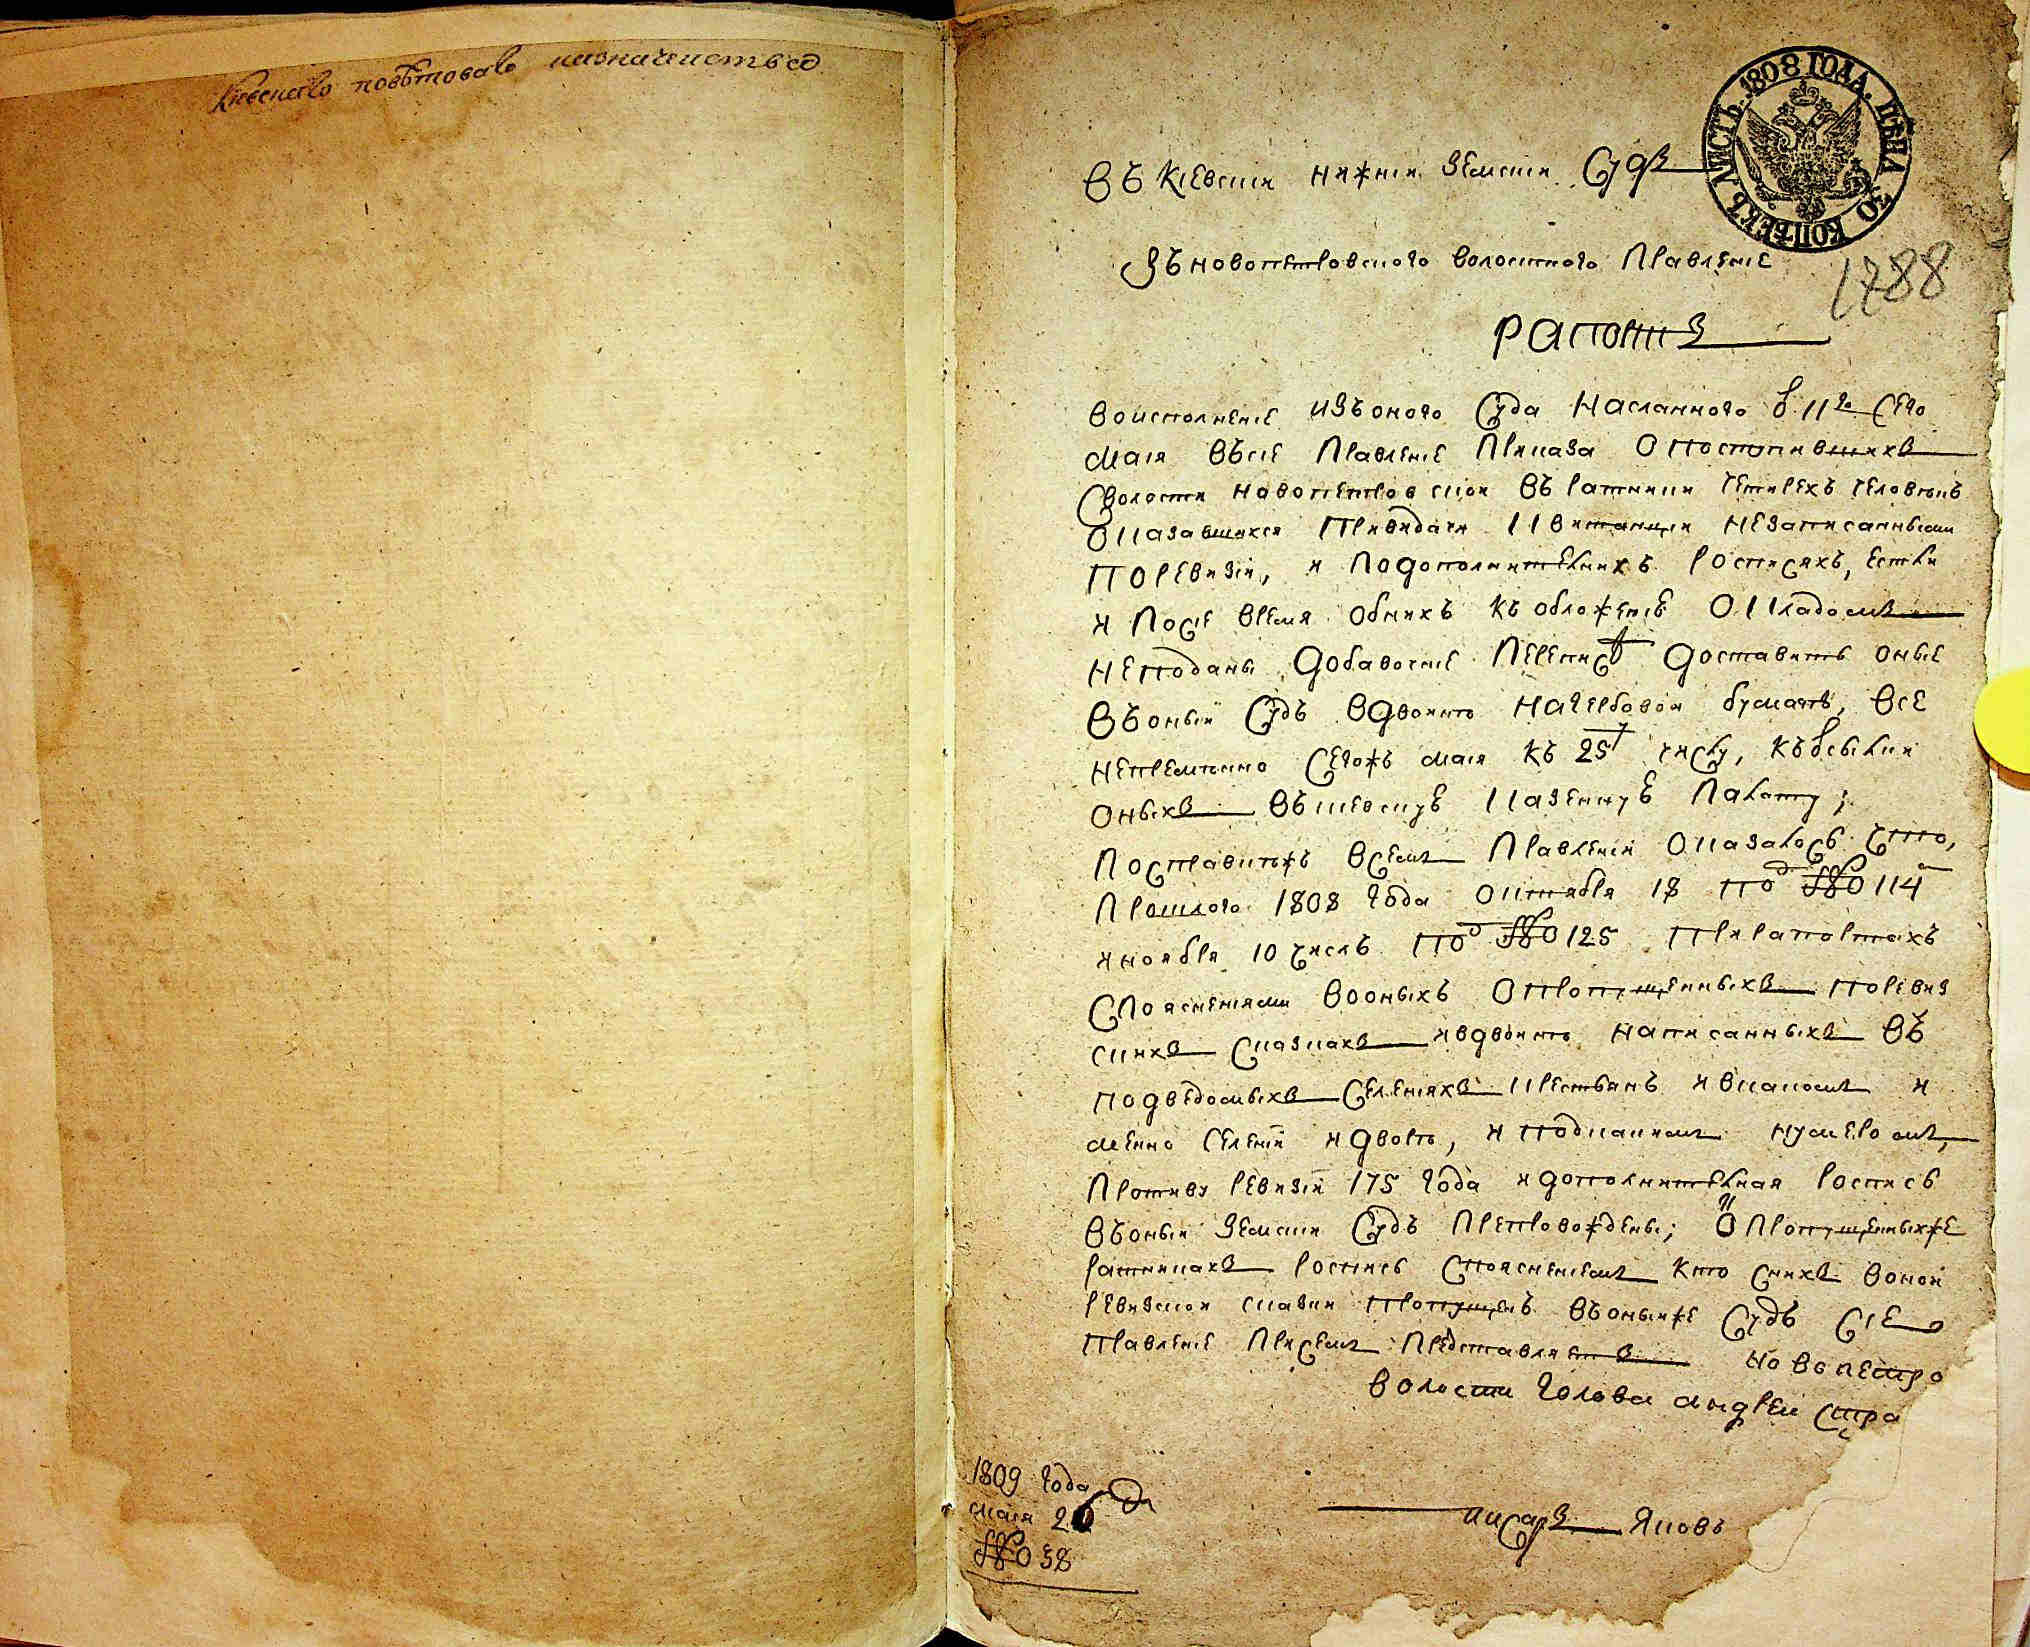 Кіевскаго повѣтоваго казначейства
ЛИСТЪ. 1808 ГОДА. ЦѢНА 30 КОПѢЕКЪ.
Въ Кіевскіи Нижніи Земскіи Судъ
Зъ Новопетровского волостного Правленіе
1788
Рапортъ
Воисполненіе изъ оного Суда Насланного в 11го сего
мая въ сіе Правленіе Приказа о поступившихъ
Сволости новопетровскои въ ратники четирехъ человѣкъ
оказавшихся при видачи квитанціи незаписанными
по ревизіи, и по дополнителнихъ росписяхъ, естли
и по сіе время обнихъ къ обложенію окладомъ
неподаны добавочніе переписѣ доставить оніе
въ оныи Судъ вдвоинѣ на гербовои бумагѣ, все
непремѣнно сегожъ мая къ 25 числу, къ отсилки
оныхъ въ кіевскую казенную палату;
Поправитежъ всемъ Правленіи оказалось что,
Прошлого 1808 года октября 18 под №о 114
и ноября 10 числъ под №о 125 при рапортахъ
Споясненіями во оныхъ о пропущенныхъ по ревиз
скихъ сказкахъ и вдвоинѣ написанныхъ въ
подведомыхъ селеніяхъ крестьянъ и в какомъ и
менно селеніи и дворѣ, и под какимъ нумеромъ,
Противу ревизіи 175 года и дополнителная роспись
въ оныи Земскіи Судъ препровождены; о пропущенныхже
ратникахъ роспись споясненіемъ кто снихъ в онои
ревизскои сказки пропущенъ въ оныиже Судъ сіе
правленіе при семъ представляетъ Новопетро
волости голова Андреи Стра
1809 года
мая 26 д
№о 38
писарь Яковъ